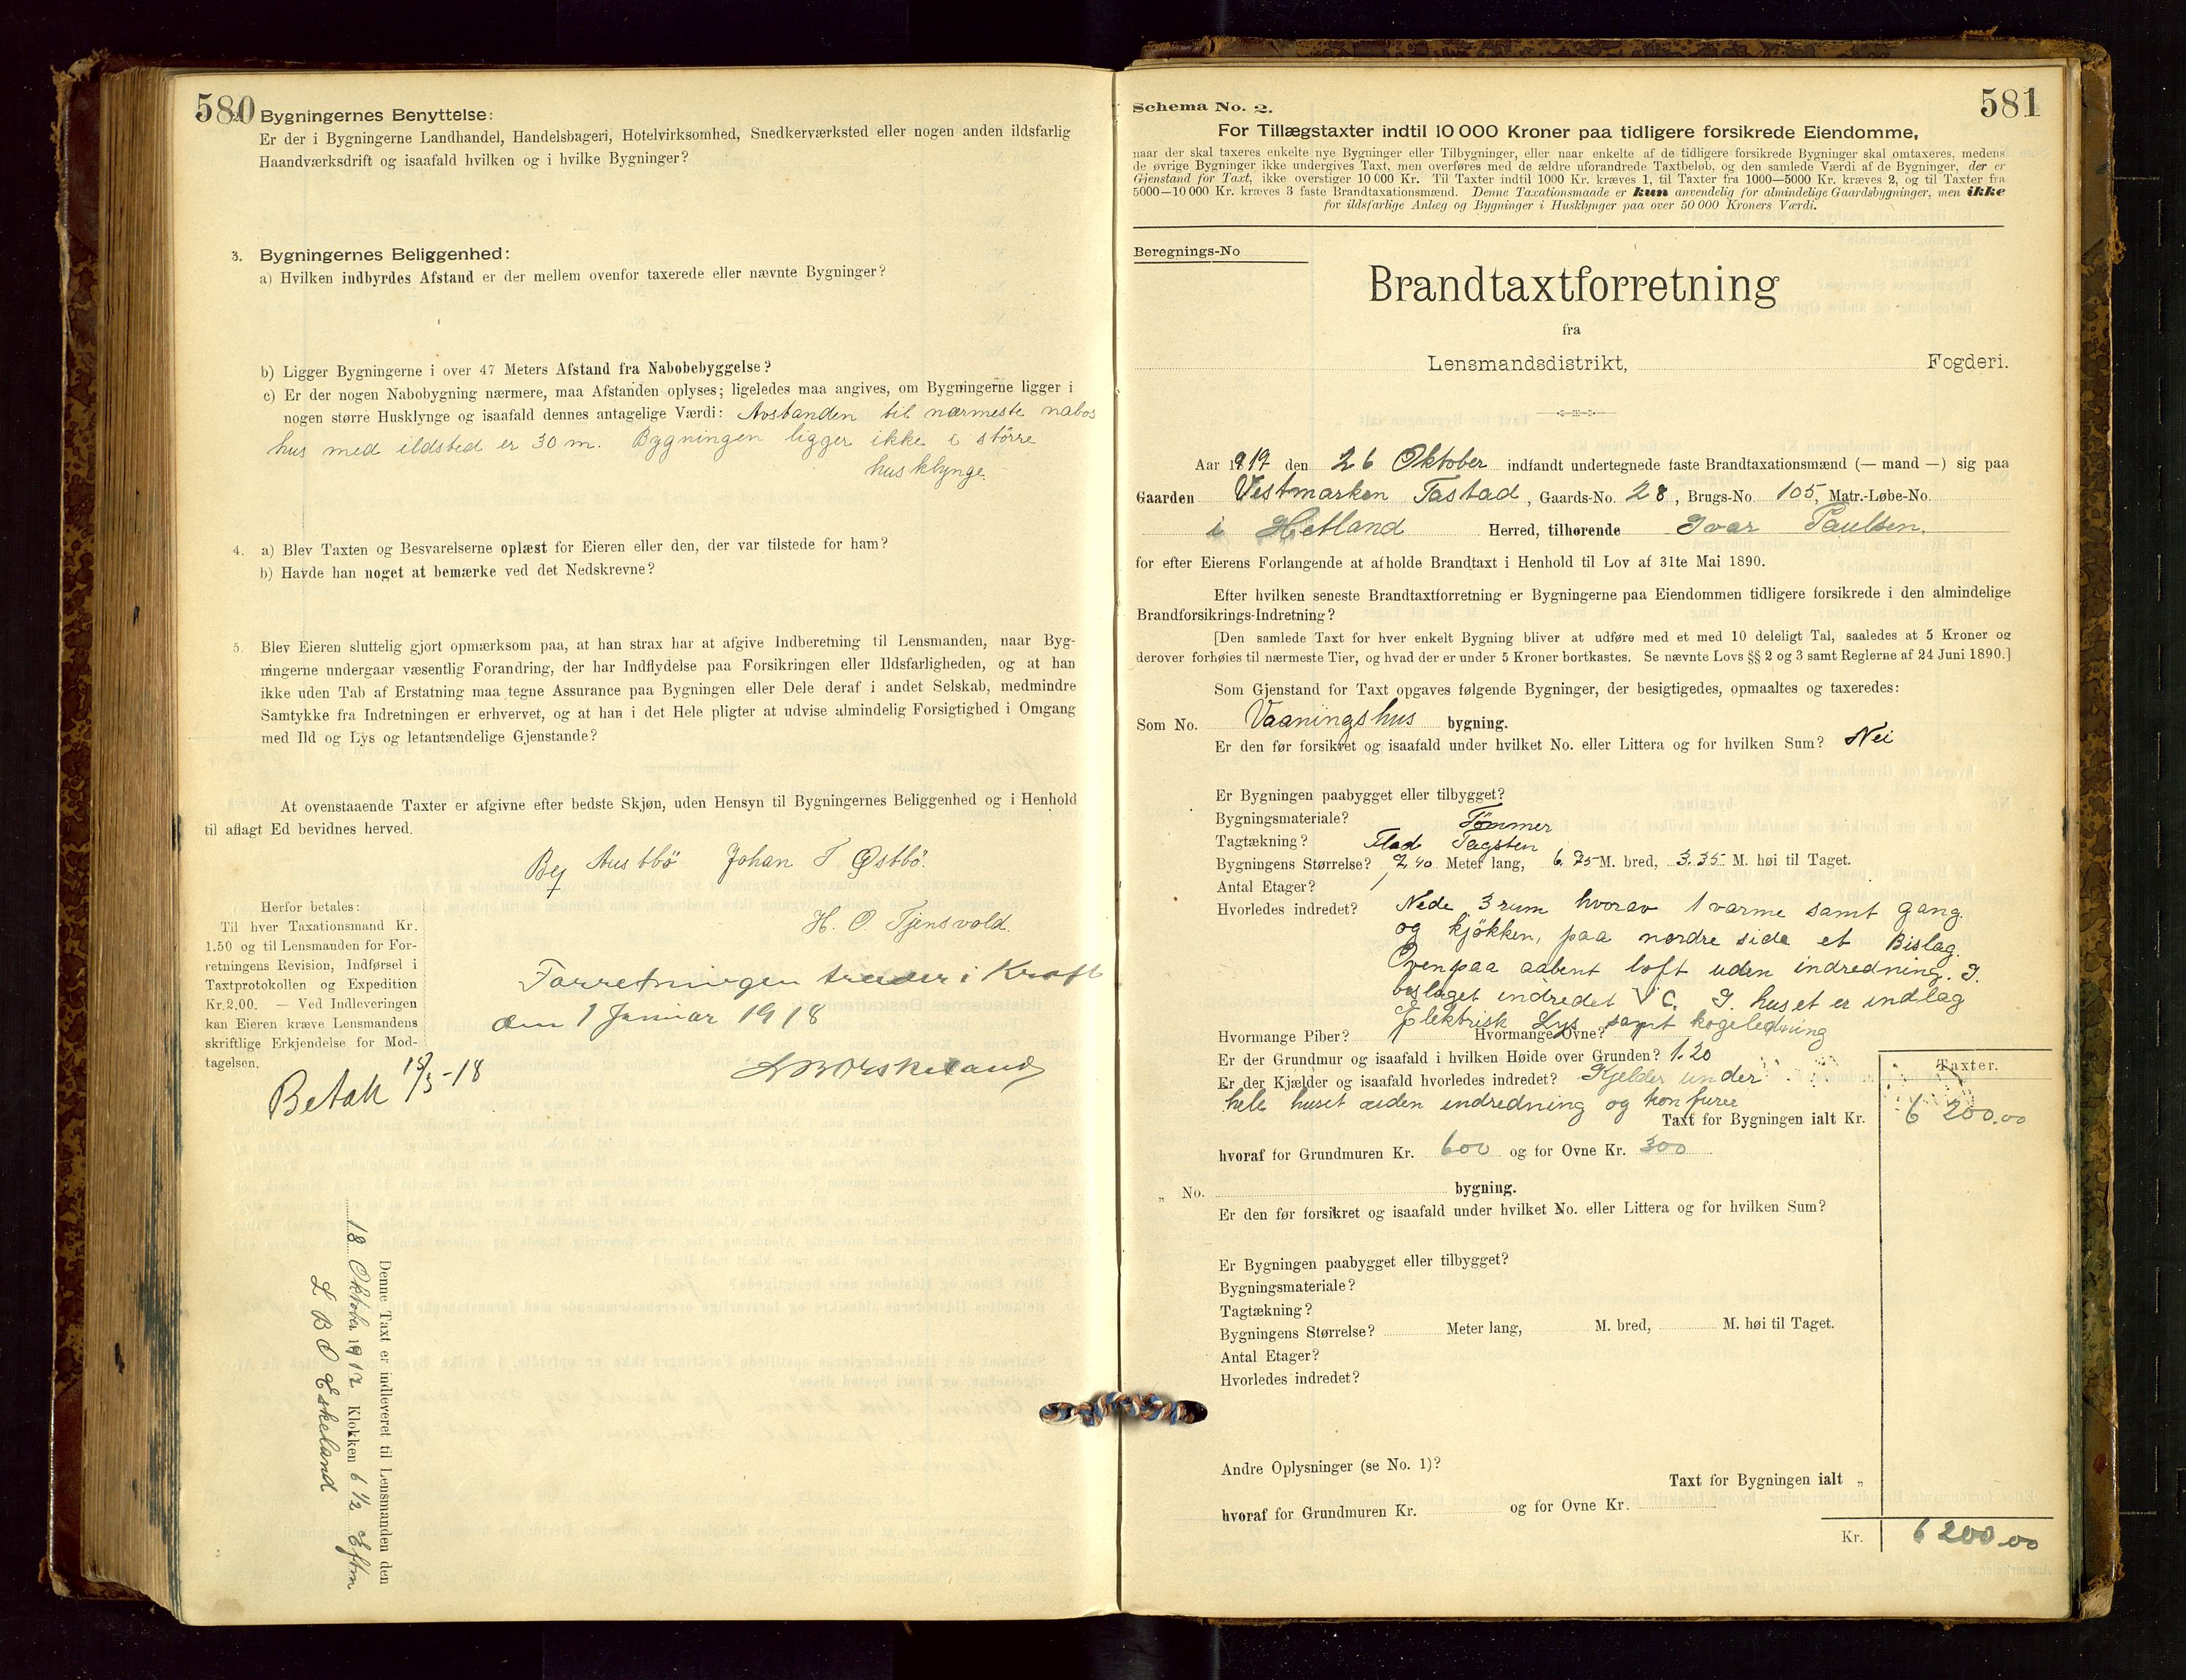 580
2. Bygningernes Benyttelse:
Er der i Bygningerne Landhandel, Handelsbageri, Hotelvirksomhed, Snedkerværksted eller nogen anden ildsfarlig
Haandværksdrift og isaafald hvilken og i hvilke Bygninger?
3. Bygningernes Beliggenhed:
a) Hvilken indbyrdes Afstand er der mellem ovenfor taxerede eller nævnte Bygninger?
b) Ligger Bygningerne i over 47 Meters Afstand fra Nabobebyggelse?
c) Er der nogen Nabobygning nærmere, maa Afstanden oplyses; ligeledes maa angives, om Bygningerne ligger i
nogen større Husklynge og isaafald dennes antagelige Værdi: Avstanden til nærmeste nabos
hus med ildsted er 30 m. Bygningen ligger ikke i större
husklynge.
4. a) Blev Taxten og Besvarelserne oplæst for Eieren eller den, der var tilstede for ham?
b) Havde han noget at bemærke ved det Nedskrevne?
5. Blev Eieren sluttelig gjort opmærksom paa, at han strax har at afgive Indberetning til Lensmanden, naar Byg-
ningerne undergaar væsentlig Forandring, der har Indflydelse paa Forsikringen eller Ildsfarligheden, og at han
ikke uden Tab af Erstatning maa tegne Assurance paa Bygningen eller Dele deraf i andet Selskab, medmindre
Samtykke fra Indretningen er erhvervet, og at han i det Hele pligter at udvise almindelig Forsigtighed i Omgang
med Ild og Lys og letantændelige Gjenstande?
At ovenstaaende Taxter er afgivne efter bedste Skjøn, uden Hensyn til Bygningernes Beliggenhed og i Henhold
til aflagt Ed bevidnes herved.
Austbö Johan T. Østbö.
H. O. Tjensvold.
Herfor betales:
Til hver Taxationsmand Kr.
1.50 og til Lensmanden for For-
retningens Revision, Indførsel i
Taxtprotokollen og Expedition
Kr. 2.00. — Ved Indleveringen
kan Eieren kræve Lensmandens
skriftlige Erkjendelse for Mod-
tagelsen.
Forretningen træder i Kraft
den 1 Januar 1918
LBOEskeland
Betalt 15/3-18
Denne Taxt er indleveret til Lensmanden den
18 Oktober 1917 Klokken 6 1/2 Eftm
L B O Eskeland
Schema No. 2.
581
For Tillægstaxter indtil 10 000 Kroner paa tidligere forsikrede Eiendomme,
naar der skal taxeres enkelte nye Bygninger eller Tilbygninger, eller naar enkelte af de tidligere forsikrede Bygninger skal omtaxeres, medens
de øvrige Bygninger ikke undergives Taxt, men overføres med de ældre uforandrede Taxtbeløb, og den samlede Værdi af de Bygninger, der er
Gjenstand for Taxt, ikke overstiger 10 000 Kr. Til Taxter indtil 1000 Kr. kræves 1, til Taxter fra 1000—5000 Kr. kræves 2, og til Taxter fra
5000—10 000 Kr. kræves 3 faste Brandtaxationsmænd. Denne Taxationsmaade er kun anvendelig for almindelige Gaardsbygninger, men ikke
for ildsfarlige Anlæg og Bygninger i Husklynger paa over 50 000 Kroners Værdi.
Beregnings-No
Brandtaxtforretning
fra
Lensmandsdistrikt, Fogderi.
Aar 1917 den 26 Oktober indfandt undertegnede faste Brandtaxationsmænd (— mand —) sig paa
Gaarden Vestmarken Tastad, Gaards-No. 28, Brugs-No. 105, Matr.-Løbe-No.
i Hetland Herred, tilhørende Ivar Paulsen.
for efter Eierens Forlangende at afholde Brandtaxt i Henhold til Lov af 31te Mai 1890.
Efter hvilken seneste Brandtaxtforretning er Bygningerne paa Eiendommen tidligere forsikrede i den almindelige
Brandforsikrings-Indretning?
[Den samlede Taxt for hver enkelt Bygning bliver at udføre med et med 10 deleligt Tal, saaledes at 5 Kroner og
derover forhøies til nærmeste Tier, og hvad der er under 5 Kroner bortkastes. Se nævnte Lovs §§ 2 og 3 samt Reglerne af 24 Juni 1890.]
Som Gjenstand for Taxt opgaves følgende Bygninger, der besigtigedes, opmaaltes og taxeredes:
Som No. Vaaningshus bygning.
Er den før forsikret og isaafald under hvilket No. eller Littera og for hvilken Sum? Nei
Er Bygningen paabygget eller tilbygget?
Bygningsmateriale? Tömmer
Tagtækning? Flad Tagsten
Bygningens Størrelse? 7.40 Meter lang, 6.75 M. bred, 3.35 M. høi til Taget.
Antal Etager? 1
Hvorledes indredet? Nede 3 rum hvorav 1 varme samt gang.
og kjökken, paa nordre side et Bislag.
Ovenpaa aabent loft uden indredning. I.
bislaget indredet V C. I. huset er indlag
Elektrisk Lys samt kogeledning
Hvormange Piber? 1 Hvormange Ovne? 1
Er der Grundmur og isaafald i hvilken Høide over Grunden? 1.20
Er der Kjælder og isaafald hvorledes indredet? Kjelder under
hele huset uden indredning og
Taxter.
Taxt for Bygningen ialt Kr. 6 200.00
hvoraf for Grundmuren Kr. 600 og for Ovne Kr. 300
„ No. bygning.
Er den før forsikret og isaafald under hvilket No. eller Littera og for hvilken Sum?
Er Bygningen paabygget eller tilbygget?
Bygningsmateriale?
Tagtækning?
Bygningens Størrelse? Meter lang, M. bred, M. høi til Taget.
Antal Etager?
Hvorledes indredet?
Andre Oplysninger (se No. 1)?
Taxt for Bygningen ialt „
hvoraf for Grundmuren Kr. og for Ovne Kr.
Kr. 6 200.00